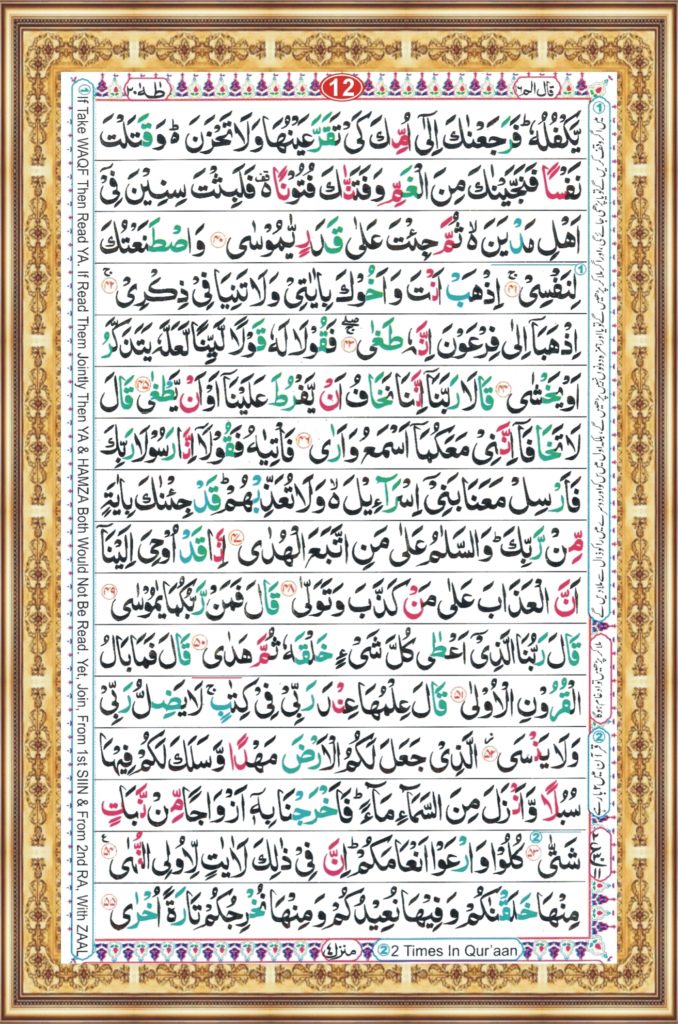 قال الم ١٦
12
طٰهٰ ٢٠
يَّكْفُلُهٗ ؕ فَرَجَعْنٰكَ اِلٰٓى اُمِّكَ كَىْ تَقَرَّ عَيْنُهَا وَلَا تَحْزَنَ ؕ۬ وَقَتَلْتَ
نَفْسًا فَنَجَّيْنٰكَ مِنَ الْغَمِّ وَفَتَنّٰكَ فُتُوْنًا ۬ فَلَبِثْتَ سِنِيْنَ فِىْۤ
اَهْلِ مَدْيَنَ ۙ۬ ثُمَّ جِئْتَ عَلٰى قَدَرٍ يّٰمُوْسٰى ﴿۴۰﴾ وَاصْطَنَعْتُكَ
لِنَفْسِىْ ﴿۴۱﴾ اِذْهَبْ اَنْتَ وَاَخُوْكَ بِاٰيٰتِىْ وَلَا تَنِيَا فِىْ ذِكْرِىْ ﴿۴۲﴾
اِذْهَبَاۤ اِلٰى فِرْعَوْنَ اِنَّهٗ طَغٰى ﴿۴۳﴾ فَقُوْلَا لَهٗ قَوْلًا لَّيِّنًا لَّعَلَّهٗ يَتَذَكَّرُ
اَوْ يَخْشٰى ﴿۴۴﴾ قَالَا رَبَّنَاۤ اِنَّنَا نَخَافُ اَنْ يَّفْرُطَ عَلَيْنَاۤ اَوْ اَنْ يَّطْغٰى ﴿۴۵﴾ قَالَ
لَا تَخَافَاۤ اِنَّنِىْ مَعَكُمَاۤ اَسْمَعُ وَاَرٰى ﴿۴۶﴾ فَاْتِيٰهُ فَقُوْلَاۤ اِنَّا رَسُوْلَا رَبِّكَ
فَاَرْسِلْ مَعَنَا بَنِىْۤ اِسْرَآءِيْلَ ۙ۬ وَلَا تُعَذِّبْهُمْ ؕ قَدْ جِئْنٰكَ بِاٰيَةٍ
مِّنْ رَّبِّكَ ؕ وَالسَّلٰمُ عَلٰى مَنِ اتَّبَعَ الْهُدٰى ﴿۴۷﴾ اِنَّا قَدْ اُوْحِىَ اِلَيْنَاۤ
اَنَّ الْعَذَابَ عَلٰى مَنْ كَذَّبَ وَتَوَلّٰى ﴿۴۸﴾ قَالَ فَمَنْ رَّبُّكُمَا يٰمُوْسٰى ﴿۴۹﴾
قَالَ رَبُّنَا الَّذِىْۤ اَعْطٰى كُلَّ شَىْءٍ خَلْقَهٗ ثُمَّ هَدٰى ﴿۵۰﴾ قَالَ فَمَا بَالُ
الْقُرُوْنِ الْاُوْلٰى ﴿۵۱﴾ قَالَ عِلْمُهَا عِنْدَ رَبِّىْ فِىْ كِتٰبٍ ۚ لَا يَضِلُّ رَبِّىْ
وَلَا يَنْسَى ﴿۵۲﴾ الَّذِىْ جَعَلَ لَكُمُ الْاَرْضَ مَهْدًا وَّسَلَكَ لَكُمْ فِيْهَا
سُبُلًا وَّاَنْزَلَ مِنَ السَّمَآءِ مَآءً ؕ فَاَخْرَجْنَا بِهٖۤ اَزْوَاجًا مِّنْ نَّبَاتٍ
شَتّٰى ﴿۵۳﴾ كُلُوْا وَارْعَوْا اَنْعَامَكُمْ ؕ اِنَّ فِىْ ذٰلِكَ لَاٰيٰتٍ لِّاُولِى النُّهٰى ﴿۵۴﴾
مِنْهَا خَلَقْنٰكُمْ وَفِيْهَا نُعِيْدُكُمْ وَمِنْهَا نُخْرِجُكُمْ تَارَةً اُخْرٰى ﴿۵۵﴾
منزل ٤
② 2 Times In Qur'aan
① If Take WAQF Then Read YA. If Read Them Jointly Then YA & HAMZA Both Would Not Be Read. Yet, Join, From 1st SIIN & From 2nd RA, With ZAAL